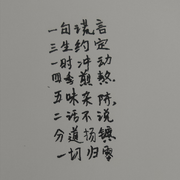 一句谎言
三生约定
一时冲动
四季煎熬.
五味杂陈,
二话不说
分道扬镳
一切归零